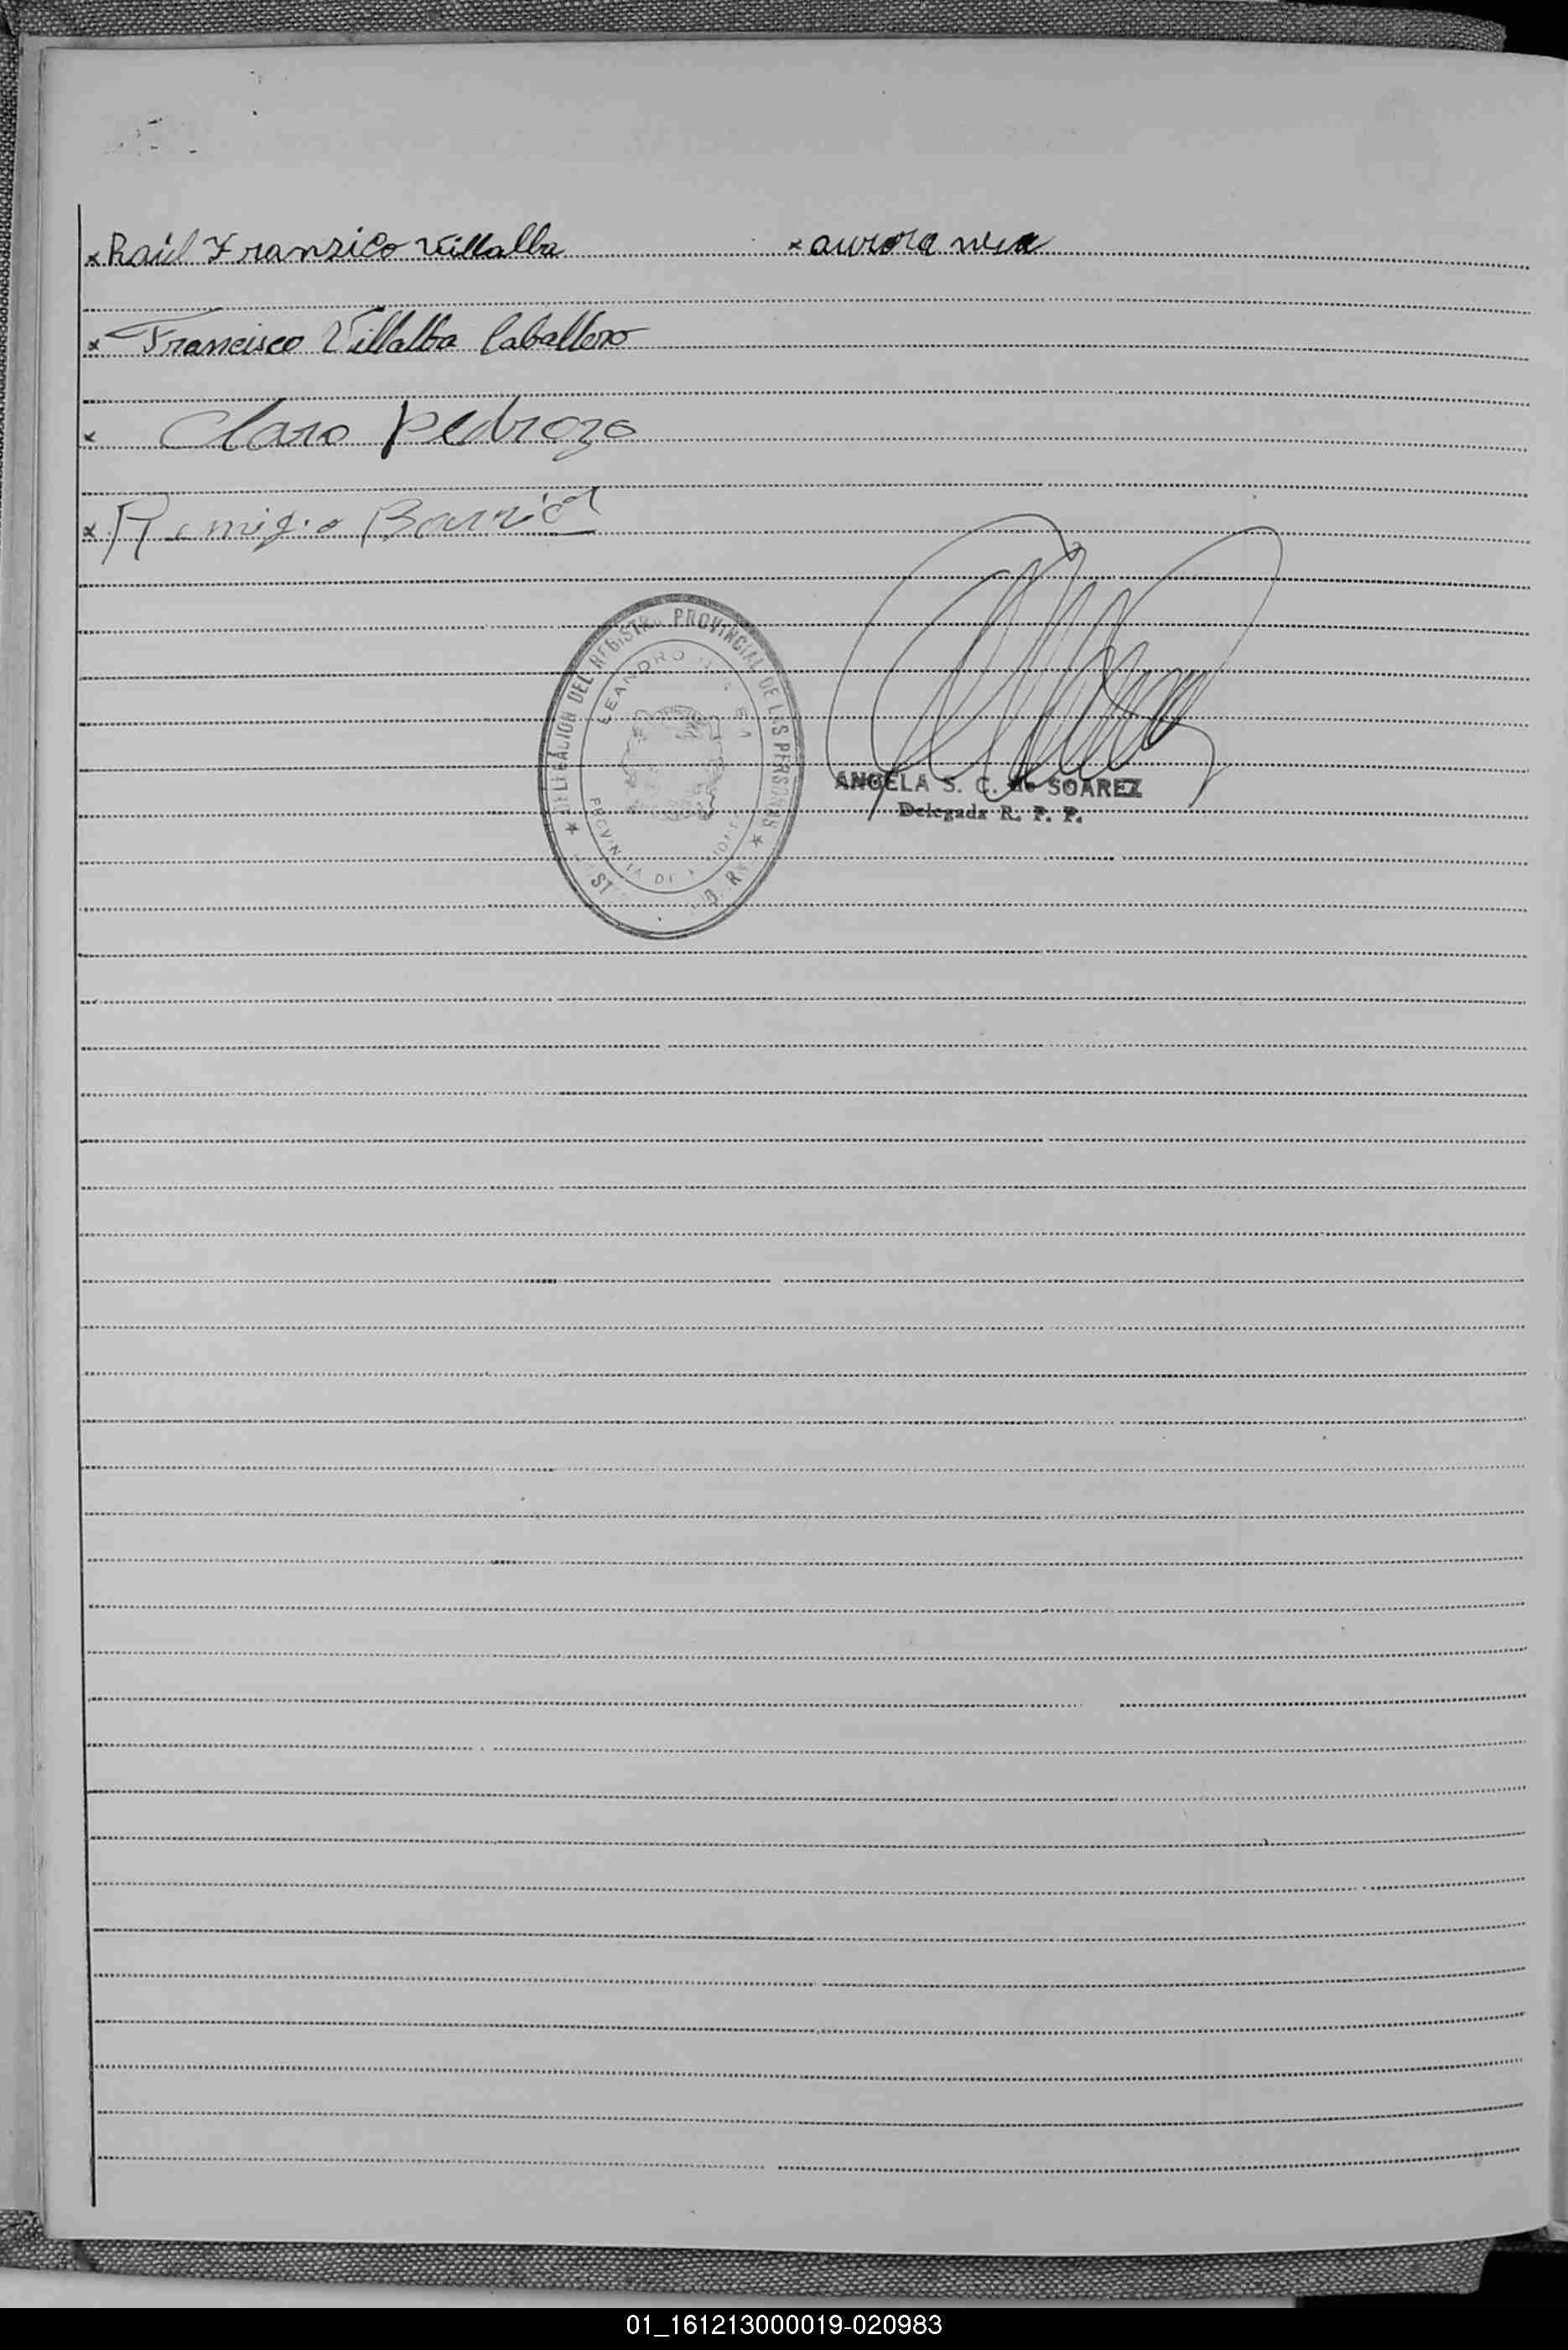 x Raúl Fransico Villalba x aurora
x Francisco Villalba Caballero
x Claro Pedrozo
x Remigio
DELEGACION DEL REGISTRO PROVINCIAL DE LAS PERSONAS
LEANDRO
ANGELA S. C. de SOAREZ
Delegada R. P. P.
01_161213000019-020983